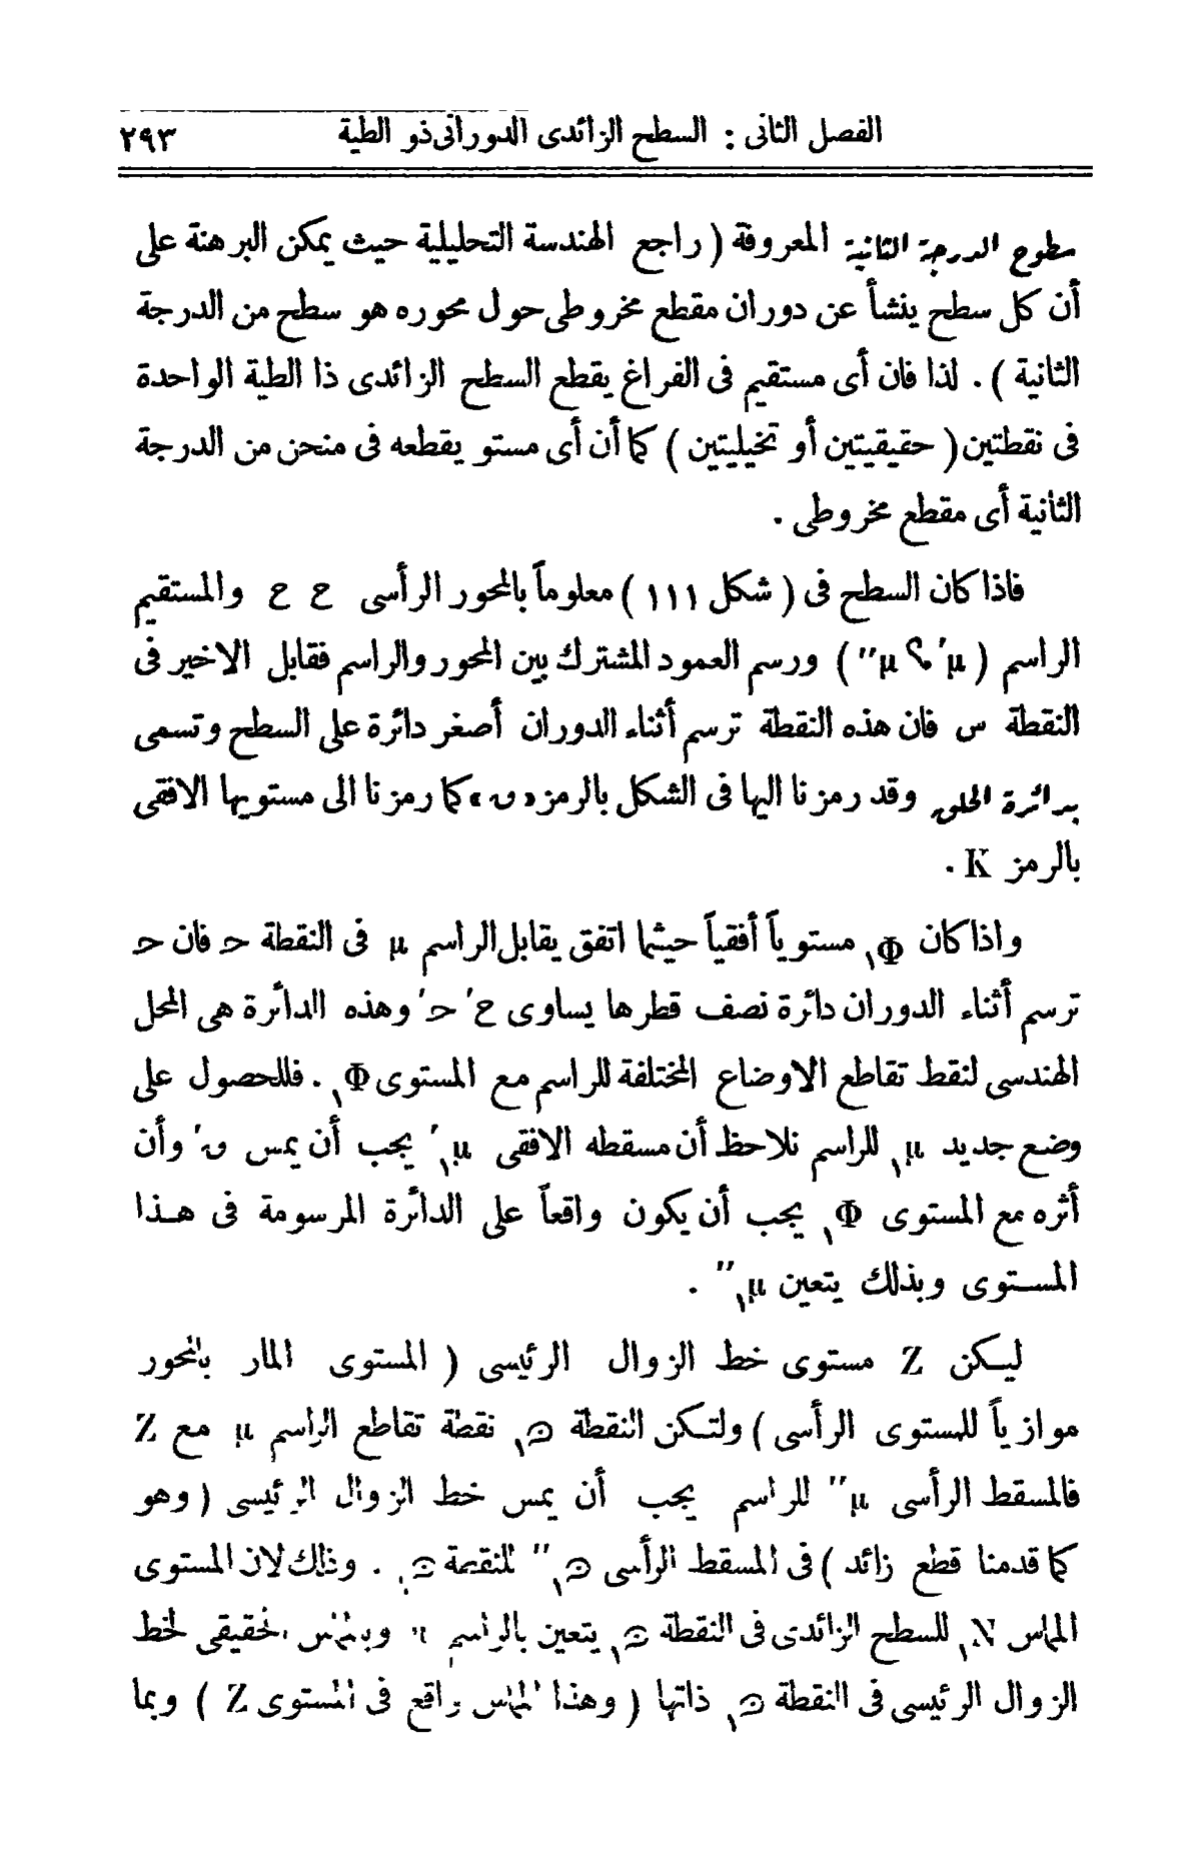 الفصل الثانى : السطح الزائدى الدورانى ذو الطية ٢٩٣
سطوح الدرجة الثانية المعروفة ( راجع الهندسة التحليلية حيث يمكن البرهنة على
أن كل سطح ينشأ عن دوران مقطع مخروطى حول محوره هو سطح من الدرجة
الثانية ) . لذا فان أى مستقيم فى الفراغ يقطع السطح الزائدى ذا الطية الواحدة
فى نقطتين ( حقيقيتين أو تخيليتين ) كما أن أى مستو يقطعه فى منحن من الدرجة
الثانية أى مقطع مخروطى .
فاذا كان السطح فى ( شكل ١١١ ) معلوماً بالمحور الرأسى ع ع والمستقيم
الراسم ( µ′ ، µ″ ) ورسم العمود المشترك بين المحور والراسم فقابل الاخير فى
النقطة س فان هذه النقطة ترسم أثناء الدوران أصغر دائرة على السطح وتسمى
بدائرة الحلق وقد رمزنا اليها فى الشكل بالرمز « ن » كما رمزنا الى مستويها الافقى
بالرمز K .
واذا كان Φ١ مستوياً أفقياً حيثما اتفق يقابل الراسم µ فى النقطة ح فان ح
ترسم أثناء الدوران دائرة نصف قطرها يساوى ع′ ح′ وهذه الدائرة هى المحل
الهندسى لنقط تقاطع الاوضاع المختلفة للراسم مع المستوى Φ١ . فللحصول على
وضع جديد µ١ للراسم نلاحظ أن مسقطه الافقى µ١′ يجب أن يمس ن′ وأن
أثره مع المستوى Φ١ يجب أن يكون واقعاً على الدائرة المرسومة فى هذا
المستوى وبذلك يتعين µ١″ .
ليكن Z مستوى خط الزوال الرئيسى ( المستوى المار بالمحور
موازياً للمستوى الرأسى ) ولتكن النقطة ج١ نقطة تقاطع الراسم µ مع Z
فالمسقط الرأسى µ″ للراسم يجب أن يمس خط الزوال الرئيسى ( وهو
كما قدمنا قطع زائد ) فى المسقط الرأسى ج١″ للنقطة ج١ . وذلك لان المستوى
المماس N١ للسطح الزائدى فى النقطة ج١ يتعين بالراسم µ وبالمماس الحقيقى لخط
الزوال الرئيسى فى النقطة ج١ ذاتها ( وهذا المماس واقع فى المستوى Z ) وبما